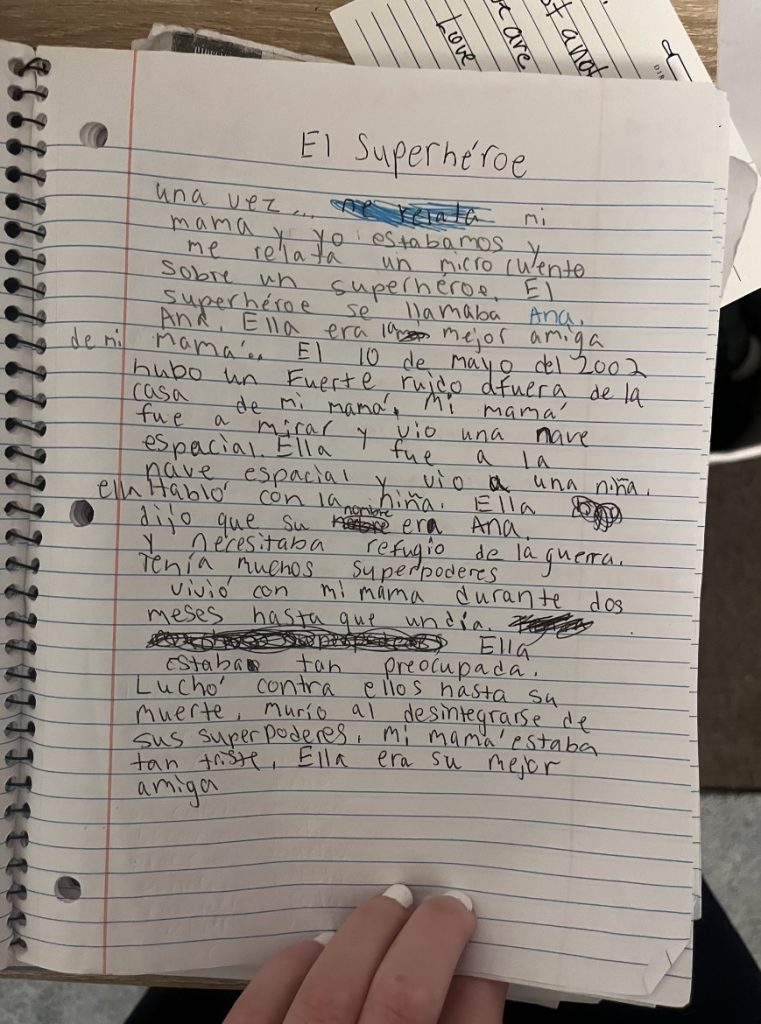 Love
e are
t anot
DIR
El Superhéroe
una vez... me relata mi
mama y yo estabamos y
me relata un micro cuento
sobre un superhéroe. El
superhéroe se llamaba Ana.
Ana. Ella era la mejor amiga
de mi mamá.. El 10 de mayo del 2002
hubo un Fuerte ruido afuera de la
casa de mi mamá. Mi mamá
fue a mirar y vio una nave
espacial. Ella fue a la
nave espacial y vio a una niña.
ella Habló con la niña. Ella
dijo que su nombre era Ana.
y necesitaba refugio de la guerra.
Tenía muchos superpoderes
vivió con mi mama durante dos
meses hasta que un día.
Ella
estaba tan preocupada.
Luchó contra ellos hasta su
muerte. murio al desintegrarse de
sus superpoderes. mi mamá estaba
tan triste. Ella era su mejor
amiga